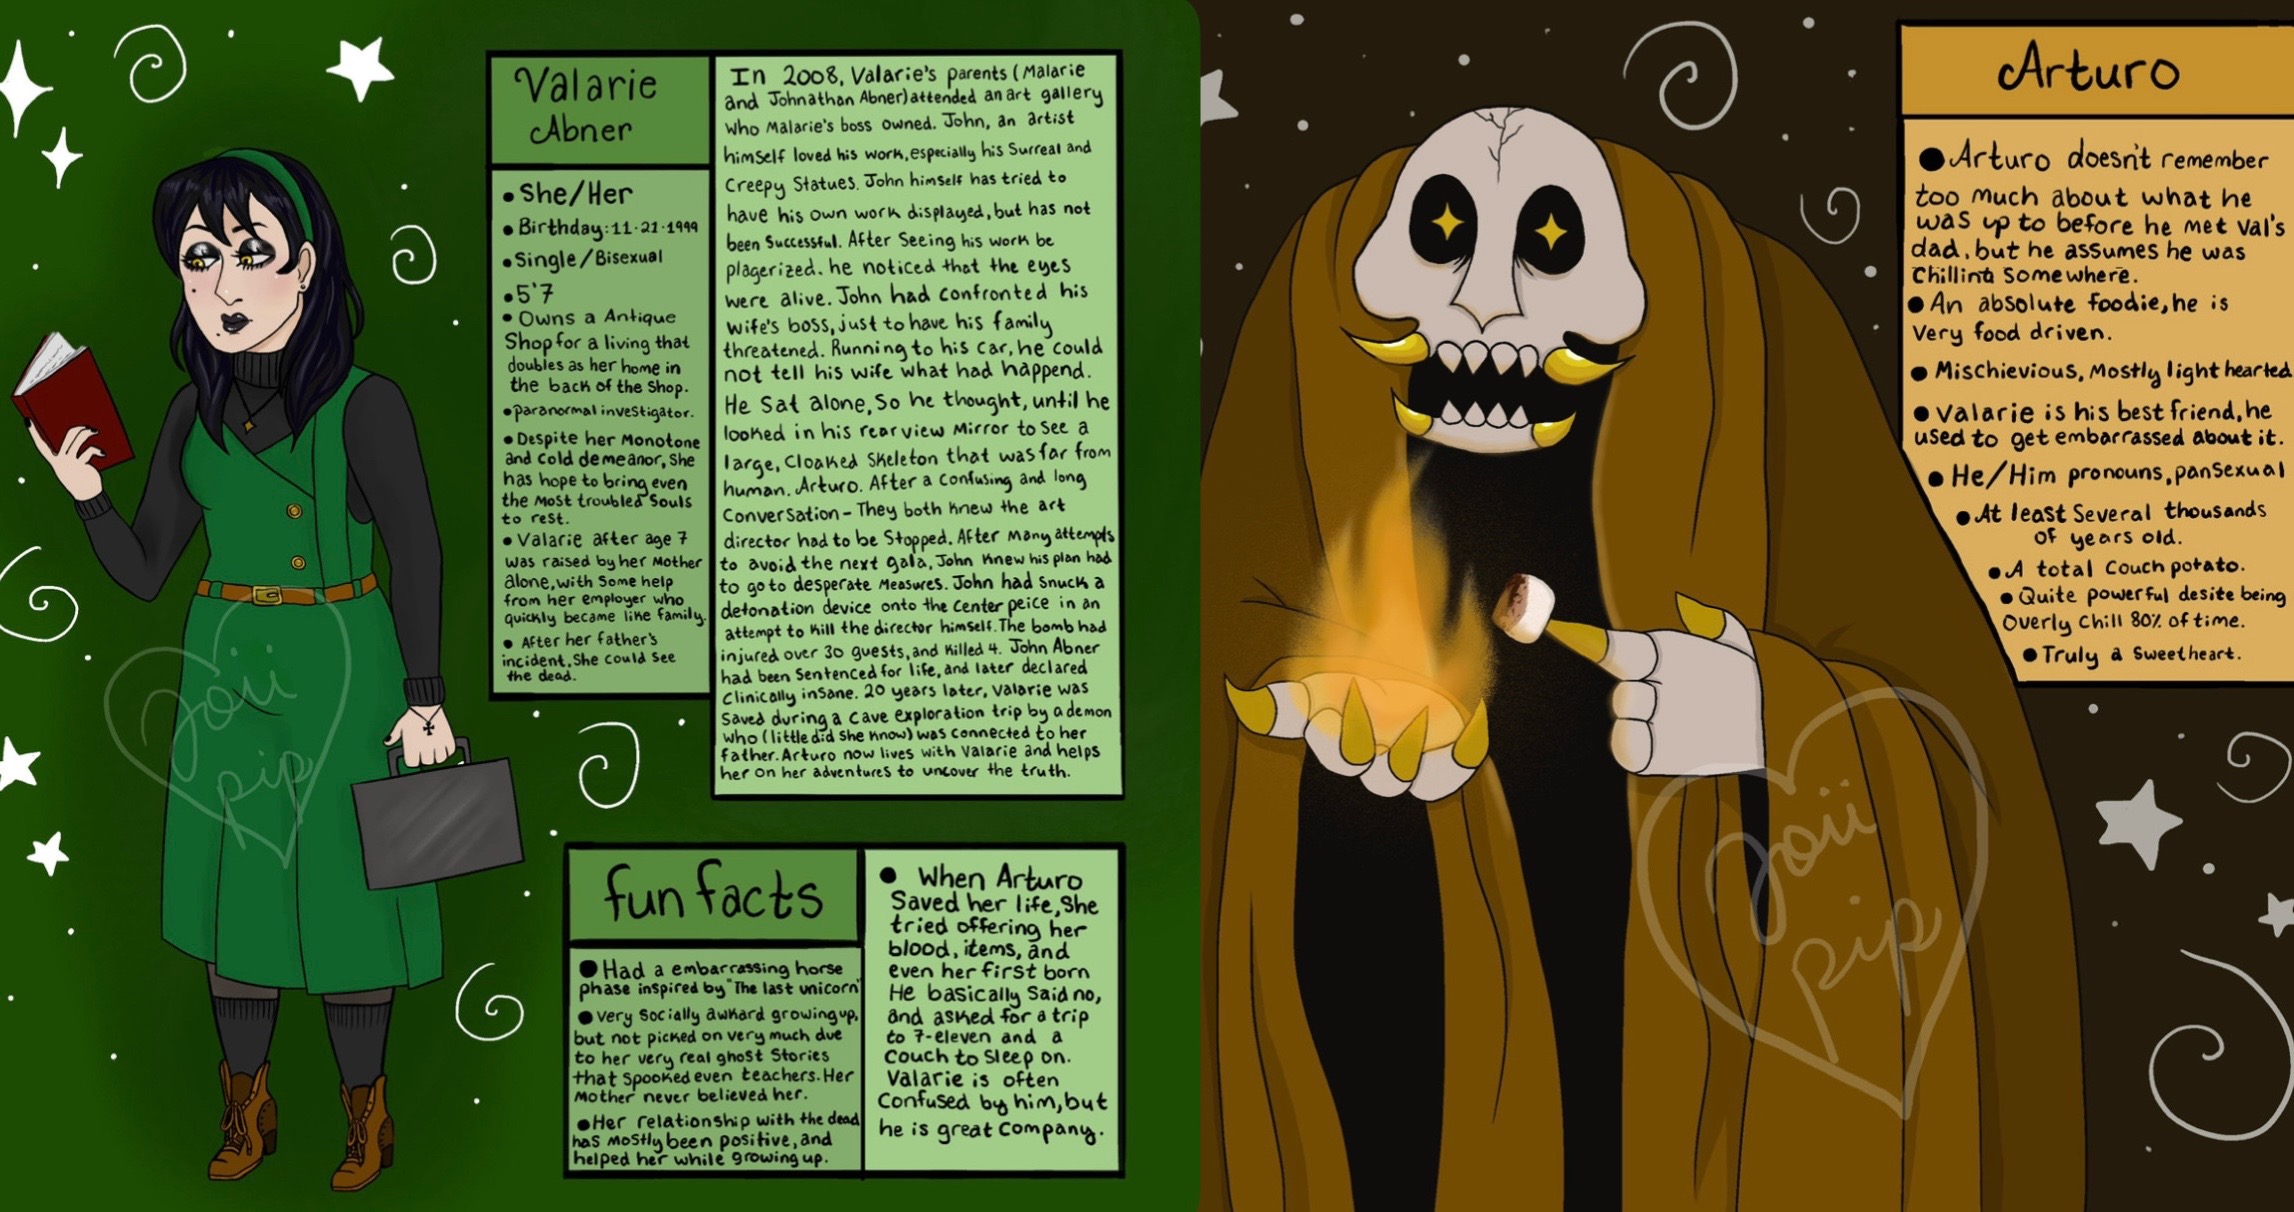 Valarie
Abner
• She/Her
• Birthday: 11·21·1999
• Single/Bisexual
• 5'7
• Owns a Antique
Shop for a living that
doubles as her home in
the back of the Shop.
• paranormal investigator.
• Despite her Monotone
and cold demeanor, She
has hope to bring even
the Most troubled Souls
to rest.
• Valarie after age 7
was raised by her Mother
alone, with some help
from her employer who
quickly became like family.
• After her father's
incident, She could see
the dead.
In 2008, Valarie's parents (Malarie
and Johnathan Abner) attended an art gallery
who Malarie's boss owned. John, an artist
himself loved his work, especially his Surreal and
Creepy Statues. John himself has tried to
have his own work displayed, but has not
been Successful. After Seeing his work be
plagerized. he noticed that the eyes
were alive. John had confronted his
wife's boss, just to have his family
threatened. Running to his car, he could
not tell his wife what had happend.
He Sat alone, So he thought, until he
looked in his rearview Mirror to See a
large, Cloaked Skeleton that was far from
human. Arturo. After a Confusing and long
Conversation - They both knew the art
director had to be Stopped. After Many attempts
to avoid the next gala, John knew his plan had
to go to desperate Measures. John had Snuck a
detonation device onto the Center peice in an
attempt to kill the director himself. The bomb had
injured over 30 guests, and killed 4. John Abner
had been Sentenced for life, and later declared
Clinically insane. 20 years later, Valarie was
Saved during a Cave exploration trip by a demon
who (little did She know) was connected to her
father. Arturo now lives with Valarie and helps
her on her adventures to uncover the truth.
fun facts
• Had a embarrassing horse
phase inspired by "The last unicorn"
• very Socially awkard growing up,
but not picked on very much due
to her very real ghost Stories
that spooked even teachers. Her
Mother never believed her.
• Her relationship with the dead
has mostly been positive, and
helped her while growing up.
• When Arturo
Saved her life, She
tried offering her
blood, items, and
even her first born
He basically said no,
and asked for a trip
to 7-eleven and a
Couch to Sleep on.
Valarie is often
Confused by him, but
he is great Company.
Joii
pip
Arturo
• Arturo doesn't remember
too much about what he
was up to before he met Val's
dad, but he assumes he was
Chilling Somewhere.
• An absolute foodie, he is
Very food driven.
• Mischievious, Mostly light hearted
• Valarie is his best friend, he
used to get embarrassed about it.
• He/Him pronouns, panSexual
• At least Several thousands
of years old.
• A total Couch potato.
• Quite powerful desite being
Overly Chill 80% of time.
• Truly a Sweetheart.
Joii
pip